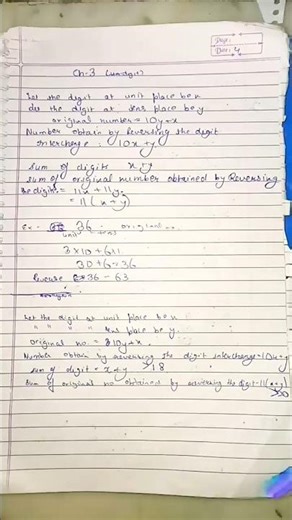 Page:
Date:
Ch-3 (unit digit)
Let the digit at unit place be x
let the digit at tens place be y
original number = 10y+x
Number obtain by Reversing the digit
interchange : 10x+y
sum of digit x+y
sum of original number obtained by Reversing
the digit = 11x + 11y
= 11(x+y)
36 original
unit tens
3×10+6×1
30+6=36
36 - 63
Let the digit at unit place be x
" " " " tens place be y.
original no. = 10y+x.
Number obtain by reversing the digit interchange = 10x+y
sum of digit = x+y 18
Sum of original no. obtained by reversing the digit = 11(x+y)